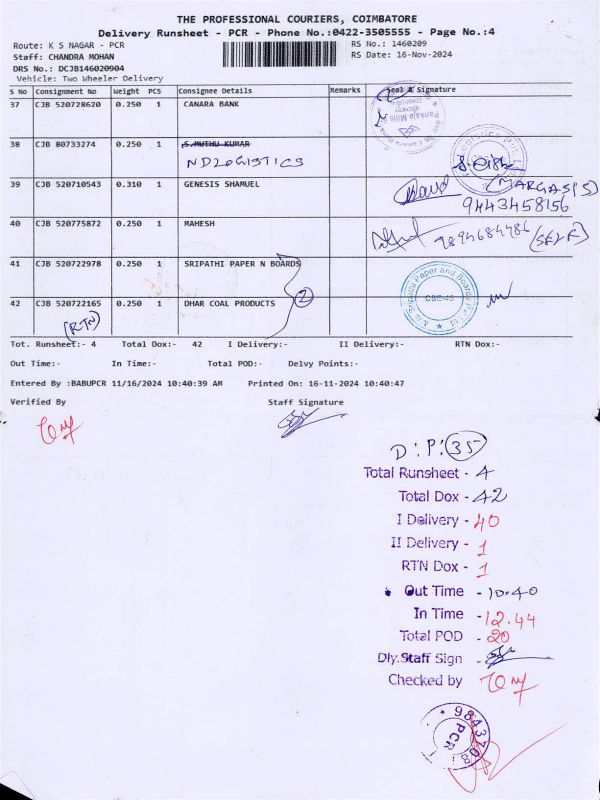 THE PROFESSIONAL COURIERS, COIMBATORE
Delivery Runsheet - PCR - Phone No.:0422-3505555 - Page No.:4
Route: K S NAGAR - PCR
RS No.: 1460209
Staff: CHANDRA MOHAN
RS Date: 16-Nov-2024
DRS No.: DCJB146020904
Vehicle: Two Wheeler Delivery
S No Consignment No Weight PCS Consignee Details Remarks Seal & Signature
37 CJB 520728620 0.250 1 CANARA BANK
Pankaja Mills
38 CJB 80733274 0.250 1 S.MUTHU KUMAR
ND LOGISTICS
39 CJB 520710543 0.310 1 GENESIS SHAMUEL (MARGASIS)
9443458156
40 CJB 520775872 0.250 1 MAHESH 9894684486 (SELF)
41 CJB 520722978 0.250 1 SRIPATHI PAPER N BOARDS
Sripathi Paper and Boards Pvt Ltd
CBE-45
2
42 CJB 520722165 0.250 1 DHAR COAL PRODUCTS
(RTN)
Tot. Runsheet:- 4 Total Dox:- 42 I Delivery:- II Delivery:- RTN Dox:-
Out Time:- In Time:- Total POD:- Delvy Points:-
Entered By :BABUPCR 11/16/2024 10:40:39 AM Printed On: 16-11-2024 10:40:47
Verified By Staff Signature
D:P:35
Total Runsheet - 4
Total Dox - 42
I Delivery - 40
II Delivery - 1
RTN Dox - 1
Out Time - 10.40
In Time - 12.44
Total POD - 20
Dly.Staff Sign -
Checked by
PCR